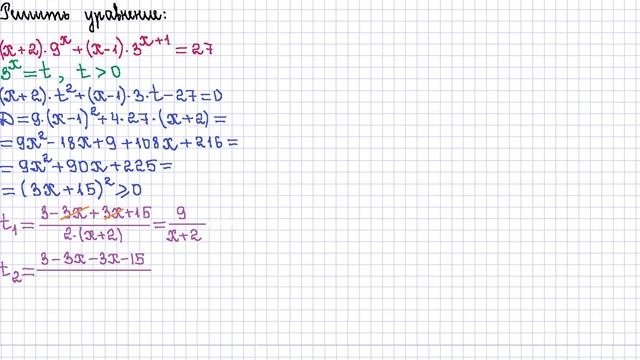 Решить уравнение:
(x+2)·9^x+(x-1)·3^{x+1}=27
3^x=t, t>0
(x+2)·t²+(x-1)·3·t-27=0
D=9·(x-1)²+4·27·(x+2)=
=9x²-18x+9+108x+216=
=9x²+90x+225=
=(3x+15)²≥0
t₁=(3-3x+3x+15)/(2·(x+2))=9/(x+2)
t₂=(3-3x-3x-15)/